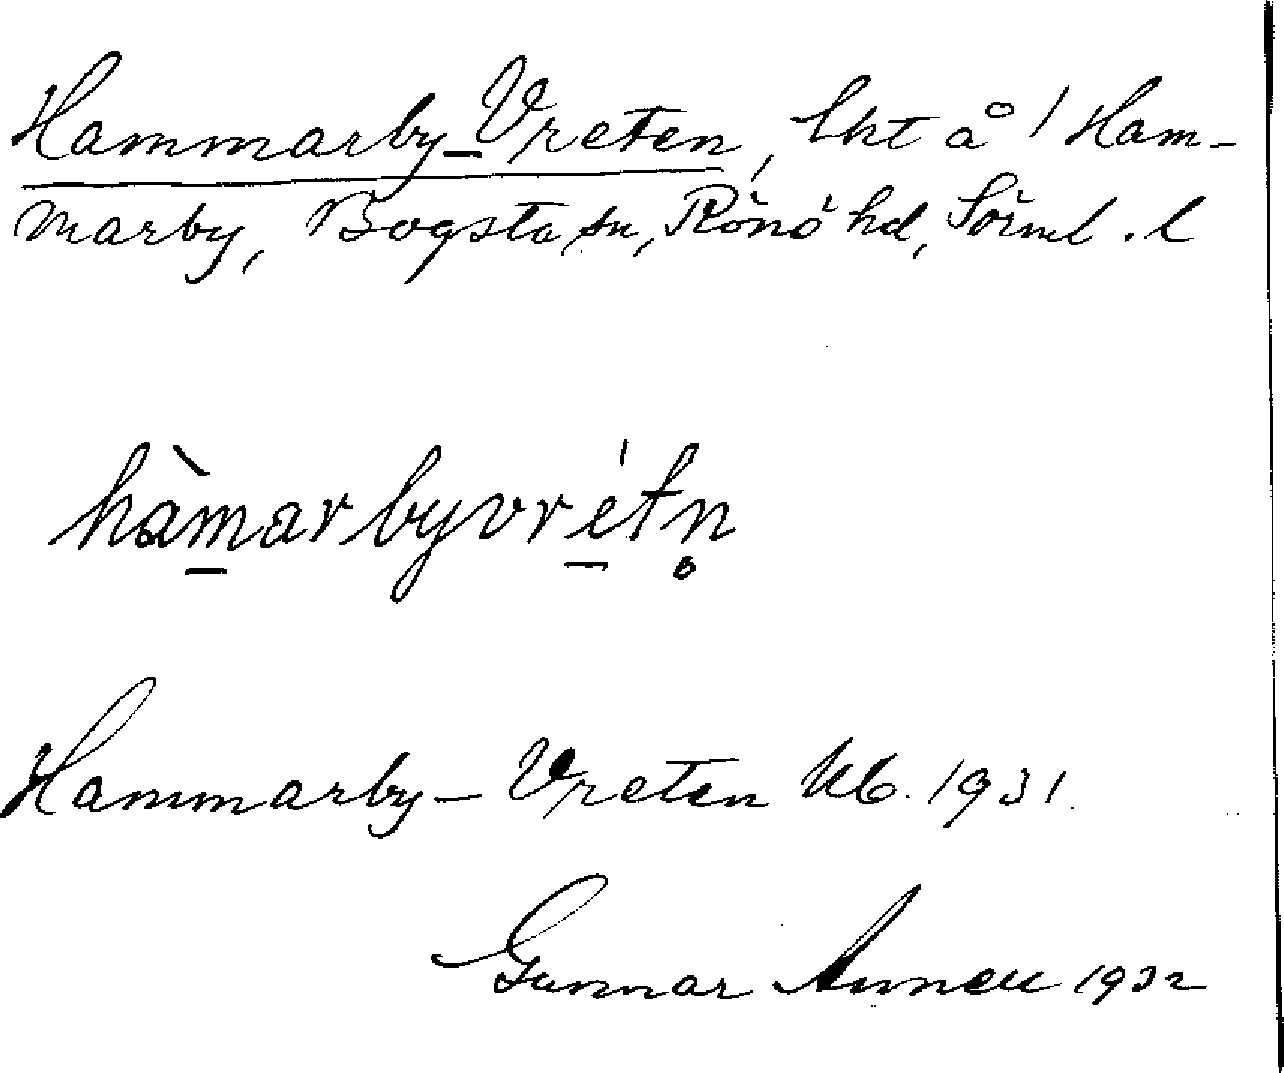 Hammarby-Vreten, lht å 1 Ham-
marby, Bogsta sn, Rönö hd, Sörml. l
hàmarbyvrétn̥
Hammarby-Vreten Kb. 1931.
Gunnar 1932